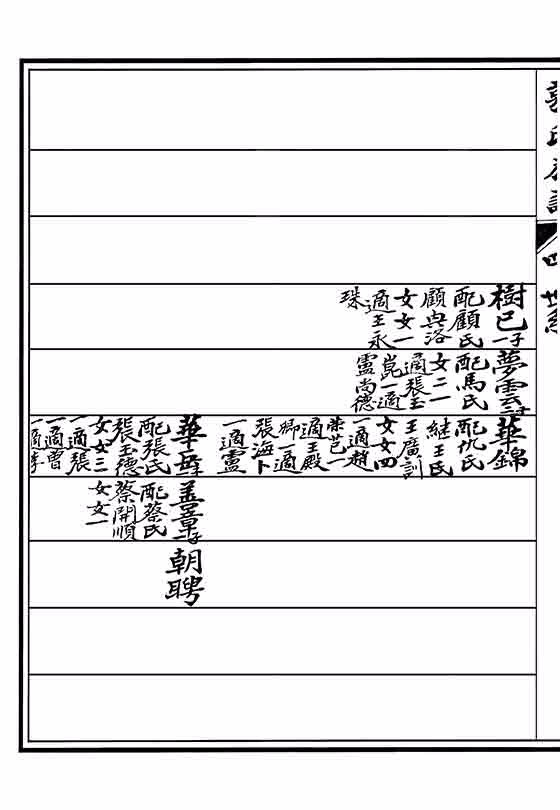 樹已子一
配顧氏
顧與洛
女女一
適王永
珠
夢雲
配馬氏
女二一
適張玉
崑一適
盧尚德
華錦
配仇氏
継王氏
王廣訓
女女四
一適趙
荣芑一
適王殿
卿一適
張海卜
一適盧
華岳
配張氏
張玉德
女女三
一適張
一適曹
一適李
善章子一
配蔡氏
蔡開順
女女一
朝聘